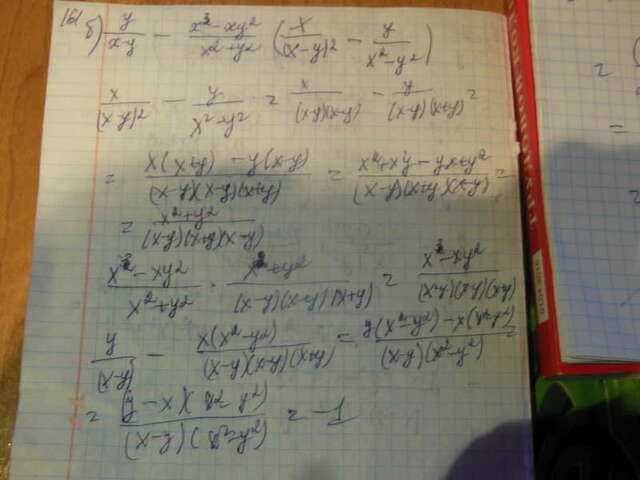 161 б) y/(x-y) - (x³-xy²)/(x²+y²) (x/(x-y)² - y/(x²-y²))
x/(x-y)² - y/(x²-y²) = x/((x-y)(x-y)) - y/((x-y)(x+y)) =
= (x(x+y) - y(x-y))/((x-y)(x-y)(x+y)) = (x²+xy-yx+y²)/((x-y)(x+y)(x-y)) =
= (x²+y²)/((x-y)(x+y)(x-y))
(x³-xy²)/(x²+y²) · (x²+y²)/((x-y)(x-y)(x+y)) = (x³-xy²)/((x-y)(x-y)(x+y))
y/(x-y) - x(x²-y²)/((x-y)(x-y)(x+y)) = (y(x²-y²)-x(x²-y²))/((x-y)(x²-y²)) =
= (y-x)(x²-y²)/((x-y)(x²-y²)) = -1